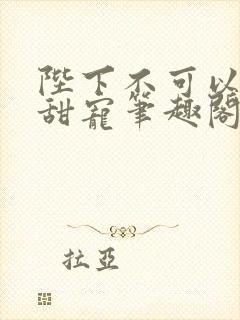 陛下不可以
甜寵筆趣閣
拉亞